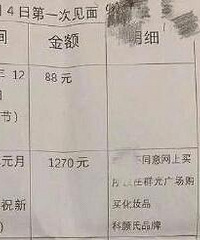 月4日第一次见面
间
金额
明细
年 12
88 元
节）
元月
1270 元
不同意网上买
在群光广场购
祝新
买化妆品
科颜氏品牌